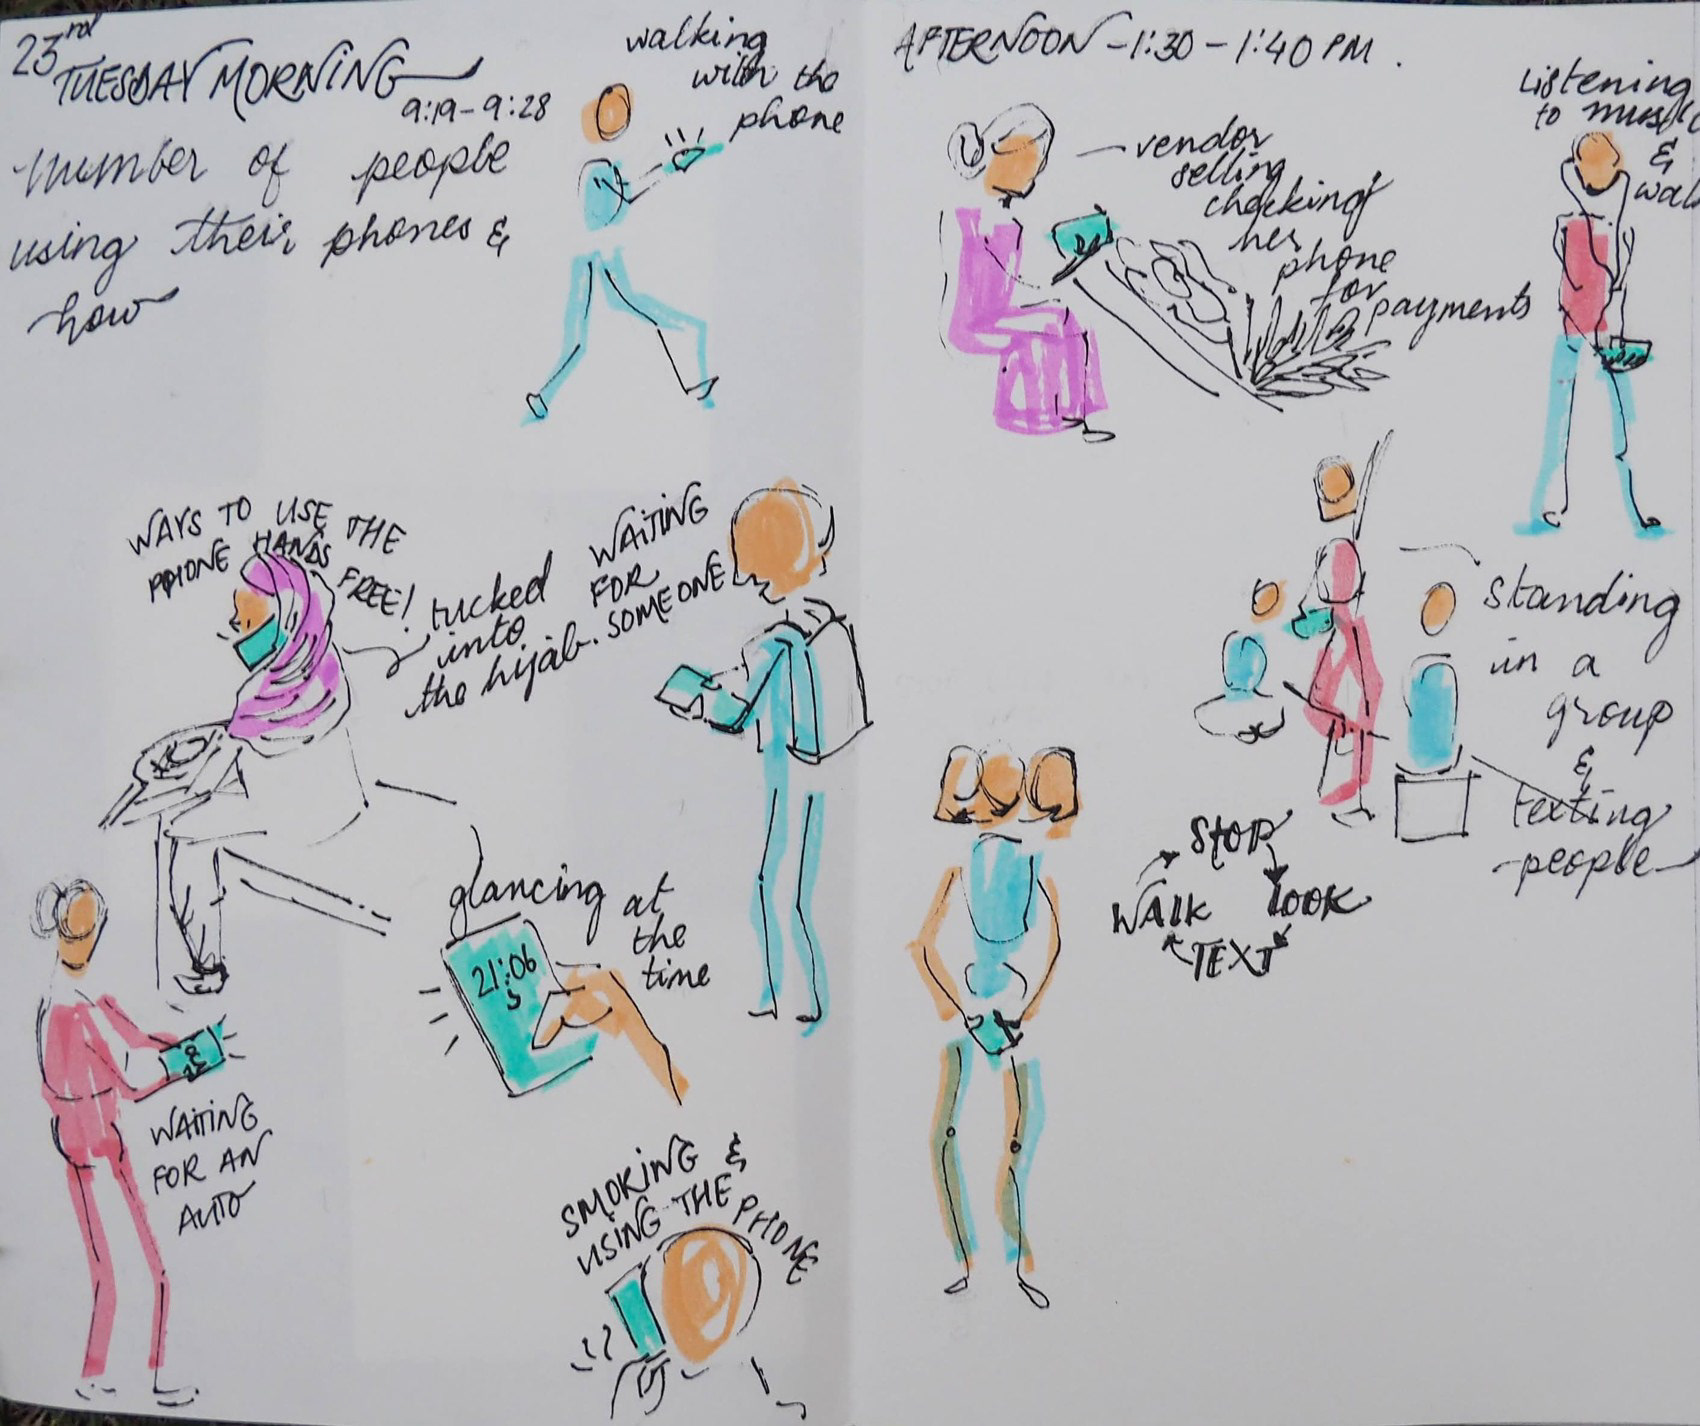 23rd
TUESDAY MORNING
9:19-9:28
number of people
using their phones &
how
walking
with the
phone
WAYS TO USE THE
PHONE HANDS
FREE!
tucked
into
the hijab.
WAITING
FOR
SOMEONE
glancing at
the
time
21:06
WAITING
FOR AN
AUTO
SMOKING &
USING THE PHONE
AFTERNOON - 1:30 - 1:40 PM.
vendor
selling
checking
her
phone
for
payments
Listening
to music
&
standing
in a
group
&
texting
people
STOP
LOOK
TEXT
WALK